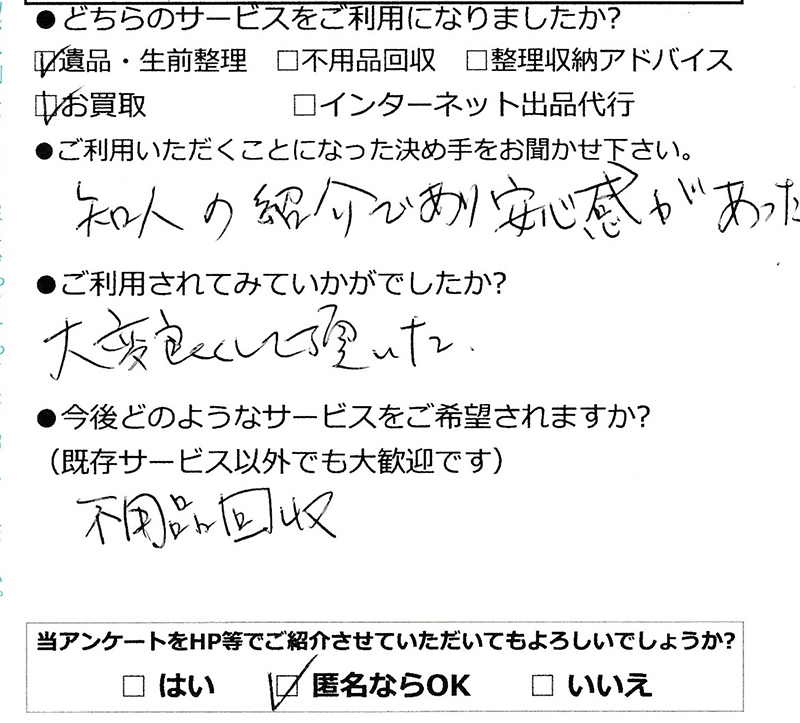 ●どちらのサービスをご利用になりましたか?
☑遺品・生前整理 □不用品回収 □整理収納アドバイス
☑お買取 □インターネット出品代行
●ご利用いただくことになった決め手をお聞かせ下さい。
知人の紹介であり安心感があった
●ご利用されてみていかがでしたか?
大変良くして頂いた.
●今後どのようなサービスをご希望されますか?
（既存サービス以外でも大歓迎です）
不用品回収
当アンケートをHP等でご紹介させていただいてもよろしいでしょうか?
□ はい ☑ 匿名ならOK □ いいえ